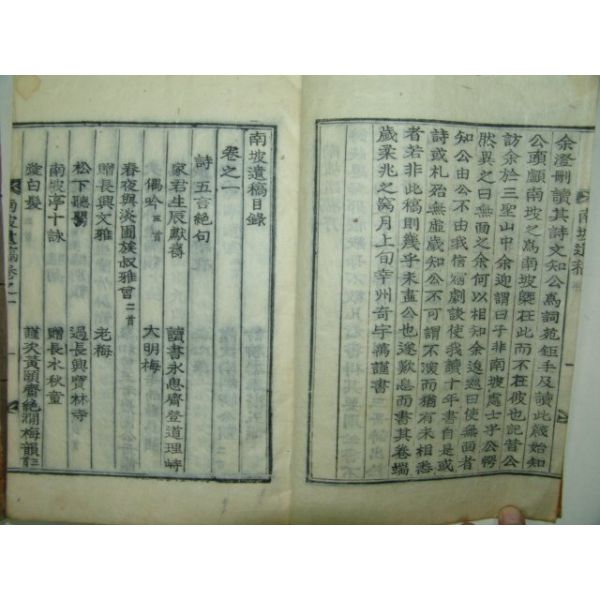 余澄刪讀其詩文知公爲詞苑鉅手及讀此箴始知
公頭顱南坡之爲南坡槩在此而不在彼也記昔公
訪余於三聖山中余迎謂曰子非南坡處士乎公愕
然異之曰無面之余何以相知余逌迆曰使無面者
知公由公不由我信宿劇談使我讀十年書自是或
詩或札殆無虛歲知公不可謂不深而猶有未相悉
者若非此稿則幾乎未盡公也遂歎息而書其卷端
歲柔兆之窩月上旬幸州奇宇萬謹書
南坡遺稿
南坡遺稿目錄
卷之一
詩 五言絶句
家君生辰獻壽 讀書永思齋登道理峙
偶吟 三首 大明梅
春夜與淡圃族叔雅會 二首
贈長興文雅 老梅
松下聽琴 過長興寶林寺
南坡亭十詠 贈長水秋童
歎白髮 謹次黃頤齋絶澗梅韻
南坡遺稿卷之一